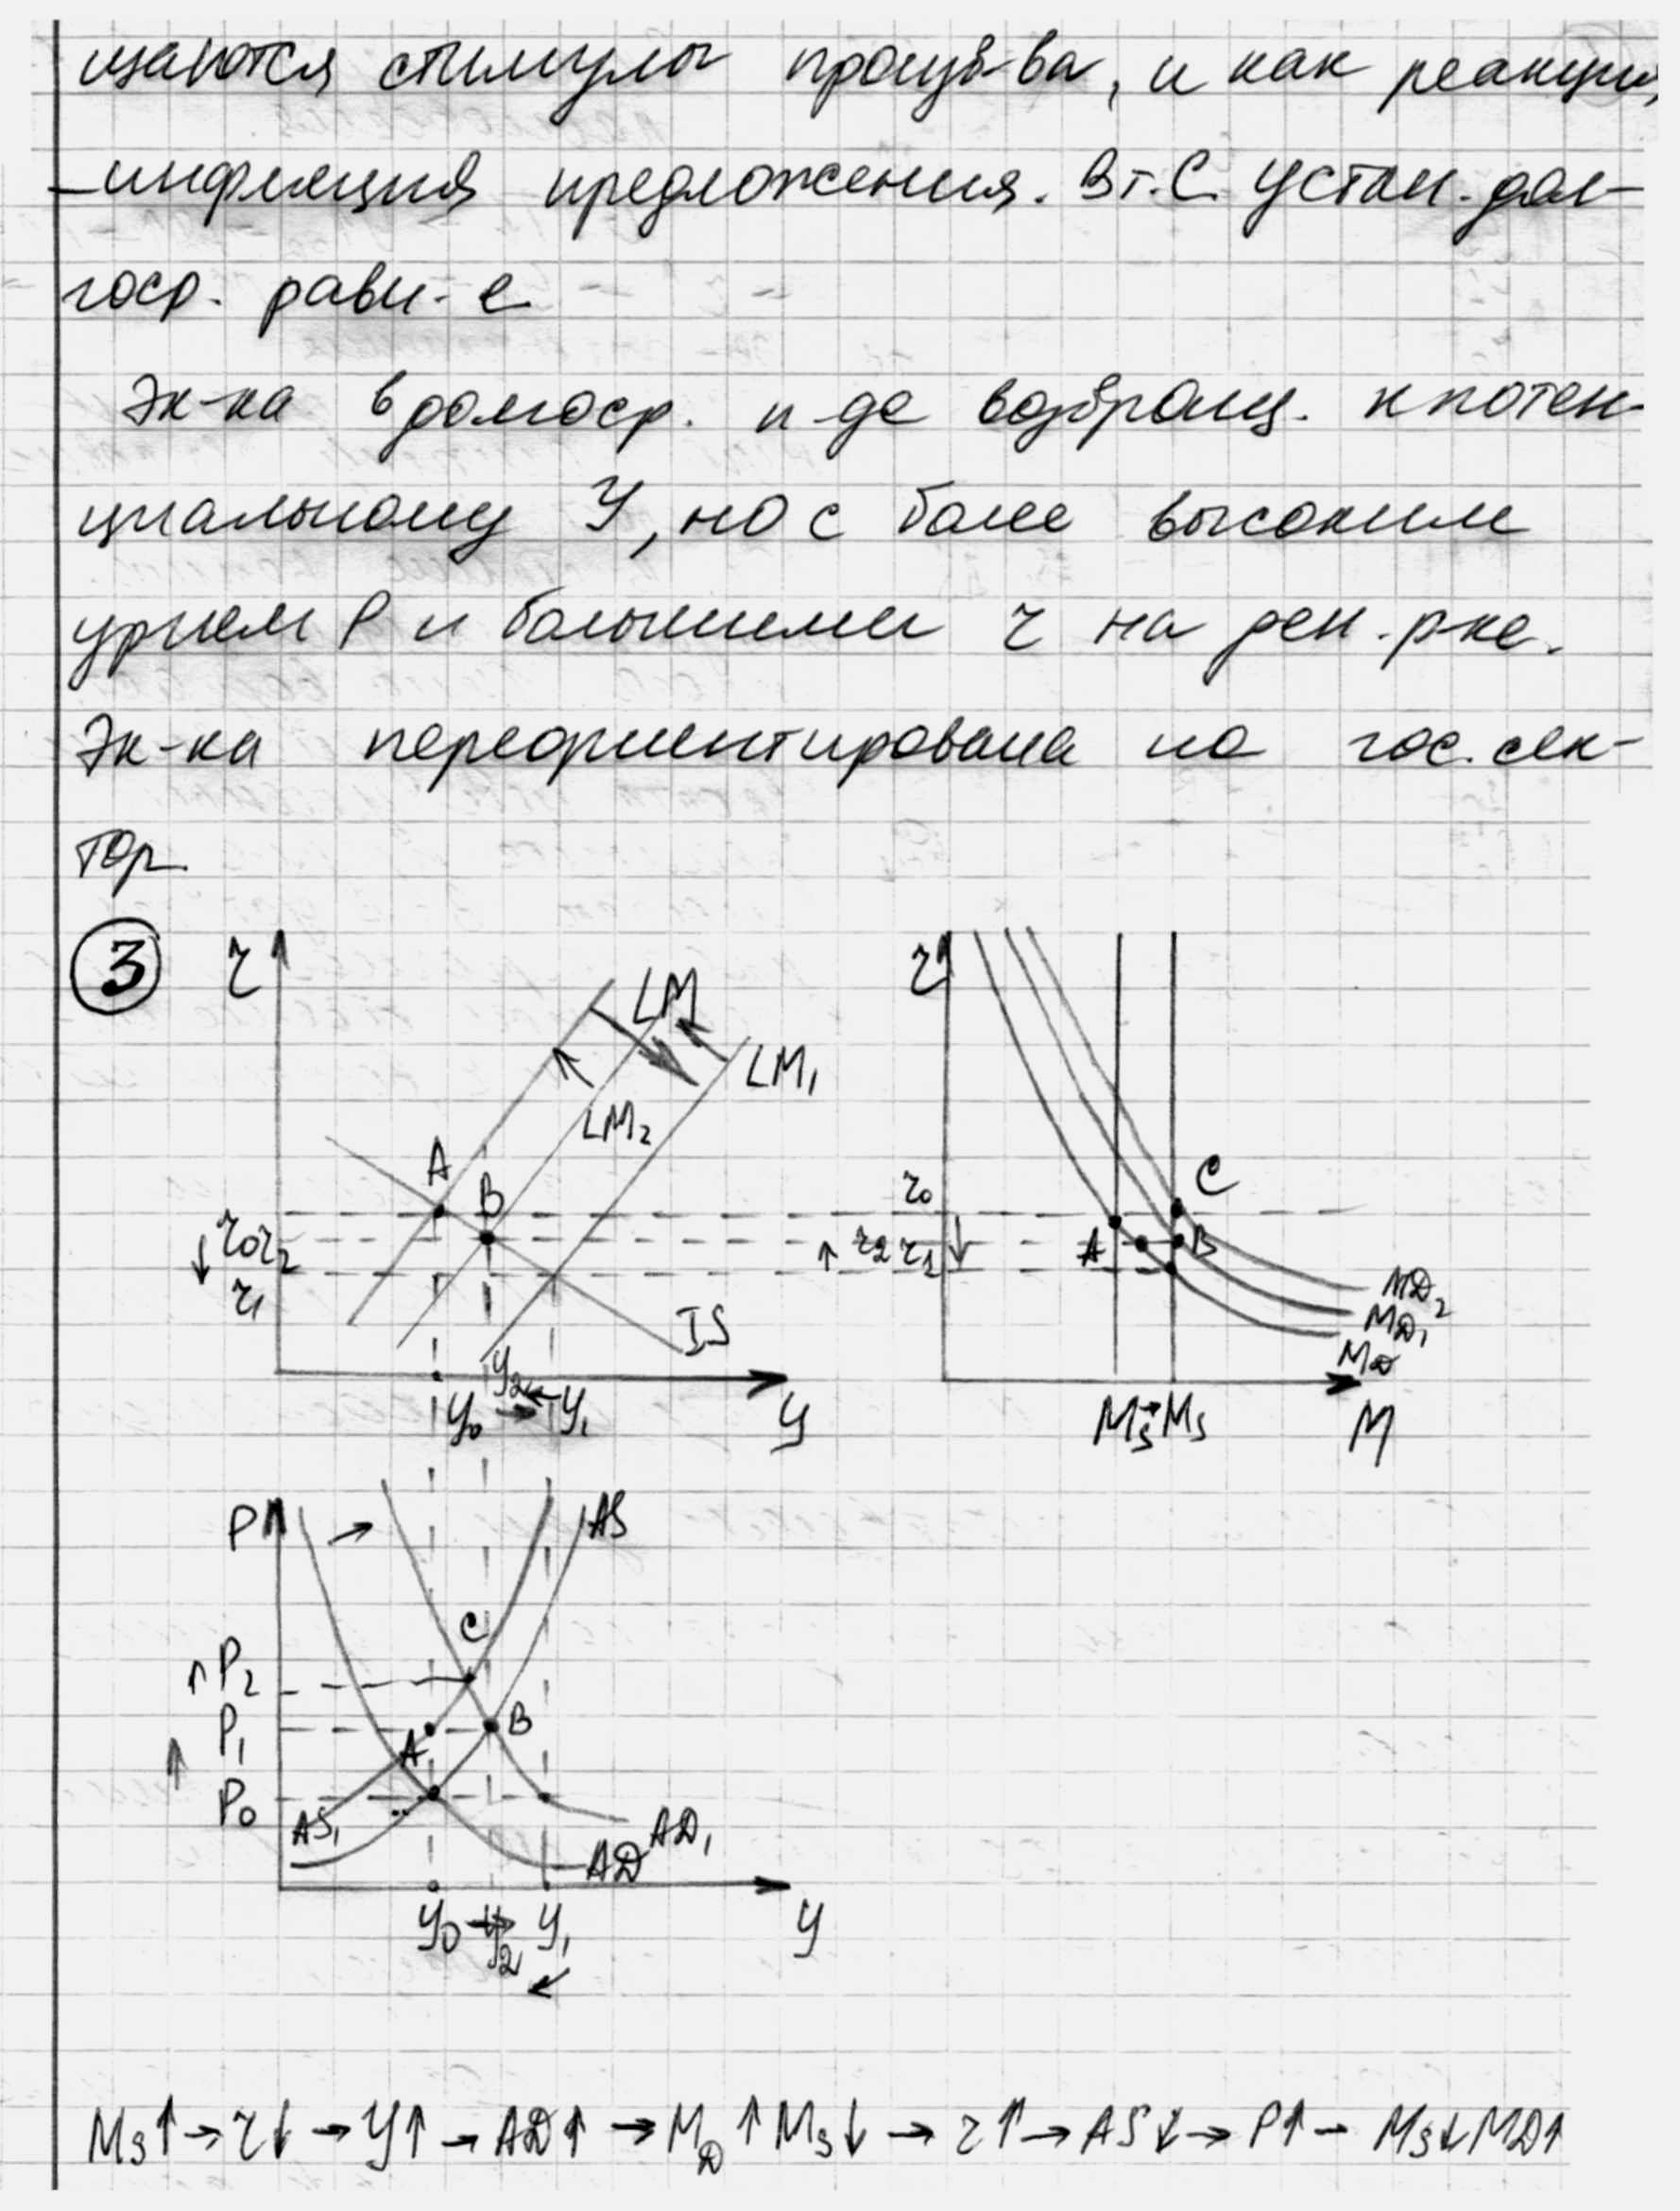 щаются стимулы произв-ва, и как реакция,
-инфляция предложения. В т. С устан. дол-
госр. равн-е
Эк-ка в долгоср. п-де возвращ. к потен-
циальному У, но с более высоким
урнем Р и большими r на ден. р-ке.
Эк-ка переориентирована на гос. сек-
тор
3
r
LM
LM1
LM2
A
B
r0 r2
r1
IS
y0
y2
y1
y
r
r0
r2 r1
A
B
C
MD2
MD1
MD
Ms → Ms
M
P
AS
C
P2
P1
P0
A
B
AS1
AD1
AD
y0 → y2 y1
y
Ms↑ → r↓ → y↑ → AD↑ → MD↑ Ms↓ → r↑ → AS↓ → P↑ – Ms↓ MD↑